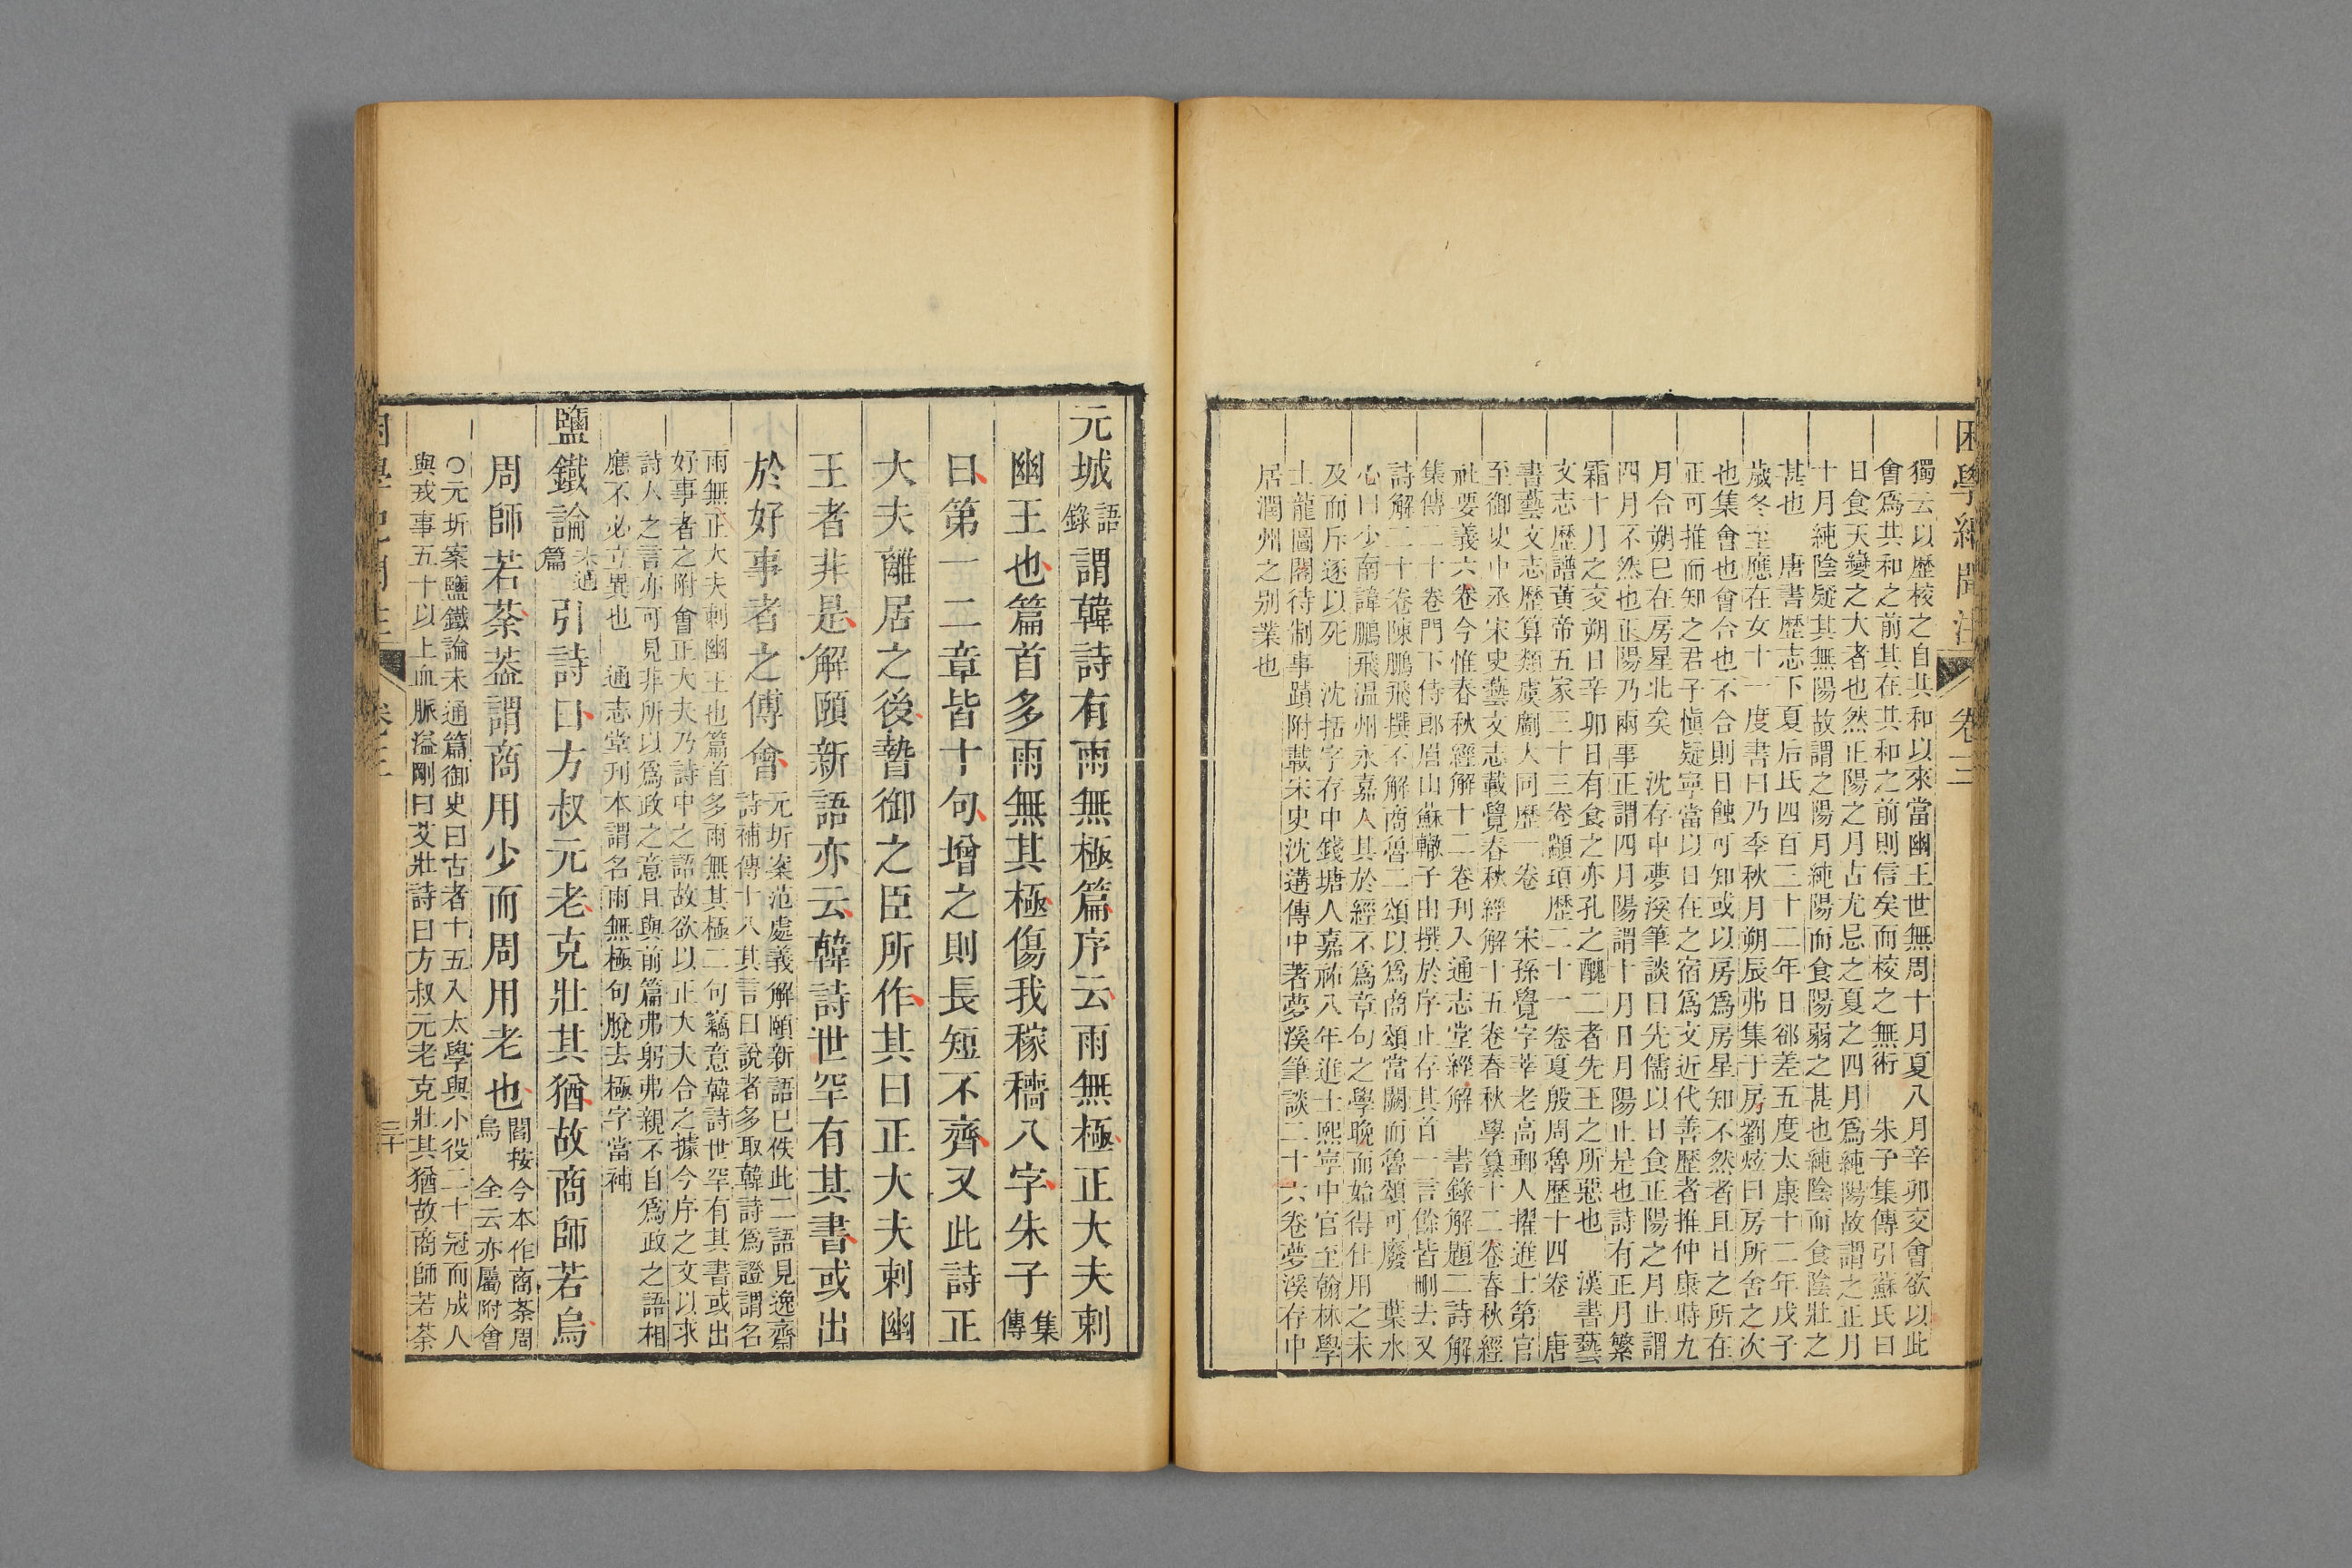 困學紀聞注 卷三
獨云以歷校之自共和以來當幽王世無周十月夏八月辛卯交會欲以此
會爲共和之前其在共和之前則信矣而校之無術　朱子集傳引蘇氏曰
日食天變之大者也然正陽之月古尤忌之夏之四月爲純陽故謂之正月
十月純陰疑其無陽故謂之陽月純陽而食陽弱之甚也純陰而食陰壯之
甚也　唐書歷志下夏后氏四百三十二年日郤差五度太康十二年戊子
歲冬至應在女十一度書曰乃季秋月朔辰弗集于房劉炫曰房所舍之次
也集會也會合也不合則日蝕可知或以房爲房星知不然者且日之所在
正可推而知之君子愼疑寧當以日在之宿爲文近代善歷者推仲康時九
月合朔已在房星北矣　沈存中夢溪筆談曰先儒以日食正陽之月止謂
四月不然也正陽乃兩事正謂四月陽謂十月日月陽止是也詩有正月繁
霜十月之交朔日辛卯日有食之亦孔之醜二者先王之所惡也　漢書藝
文志歷譜黃帝五家三十三卷顓頊歷二十一卷夏殷周魯歷十四卷　唐
書藝文志歷算類虞劇大同歷一卷　宋孫覺字莘老高郵人擢進士第官
至御史中丞宋史藝文志載覺春秋經解十五卷春秋學纂十二卷春秋經
社要義六卷今惟春秋經解十二卷刊入通志堂經解　書錄解題二詩解
集傳二十卷門下侍郎眉山蘇轍子由撰於序止存其首一言餘皆刪去又
詩解二十卷陳鵬飛撰不解商魯二頌以爲商頌當闕而魯頌可廢　葉水
心曰少南諱鵬飛温州永嘉人其於經不爲章句之學晚而始得仕用之未
及而斥逐以死　沈括字存中錢塘人嘉祐八年進士熙寧中官至翰林學
士龍圖閣待制事蹟附載宋史沈遘傳中著夢溪筆談二十六卷夢溪存中
居潤州之別業也
元城語錄謂韓詩有雨無極篇序云雨無極正大夫刺
幽王也篇首多雨無其極傷我稼穡八字朱子集傳
曰第一二章皆十句增之則長短不齊又此詩正
大夫離居之後暬御之臣所作其曰正大夫刺幽
王者非是解頤新語亦云韓詩世罕有其書或出
於好事者之傅會元圻案范處義解頤新語已佚此二語見逸齋
詩補傳十八其言曰說者多取韓詩爲證謂名
雨無正大夫刺幽王也篇首多雨無其極二句竊意韓詩世罕有其書或出
好事者之附會正大夫乃詩中之語故欲以正大夫合之據今序之文以求
詩人之言亦可見非所以爲政之意且與前篇弗躬弗親不自爲政之語相
應不必立異也　通志堂刊本謂名雨無極句脫去極字當補
鹽鐵論未通篇引詩曰方叔元老克壯其猶故商師若烏
周師若荼葢謂商用少而周用老也閻按今本作商荼周
烏　全云亦屬附會
○元圻案鹽鐵論未通篇御史曰古者十五入太學與小役二十冠而成人
與戎事五十以上血脈溢剛曰艾壯詩曰方叔元老克壯其猶故商師若荼
困學紀聞注 卷三 三十